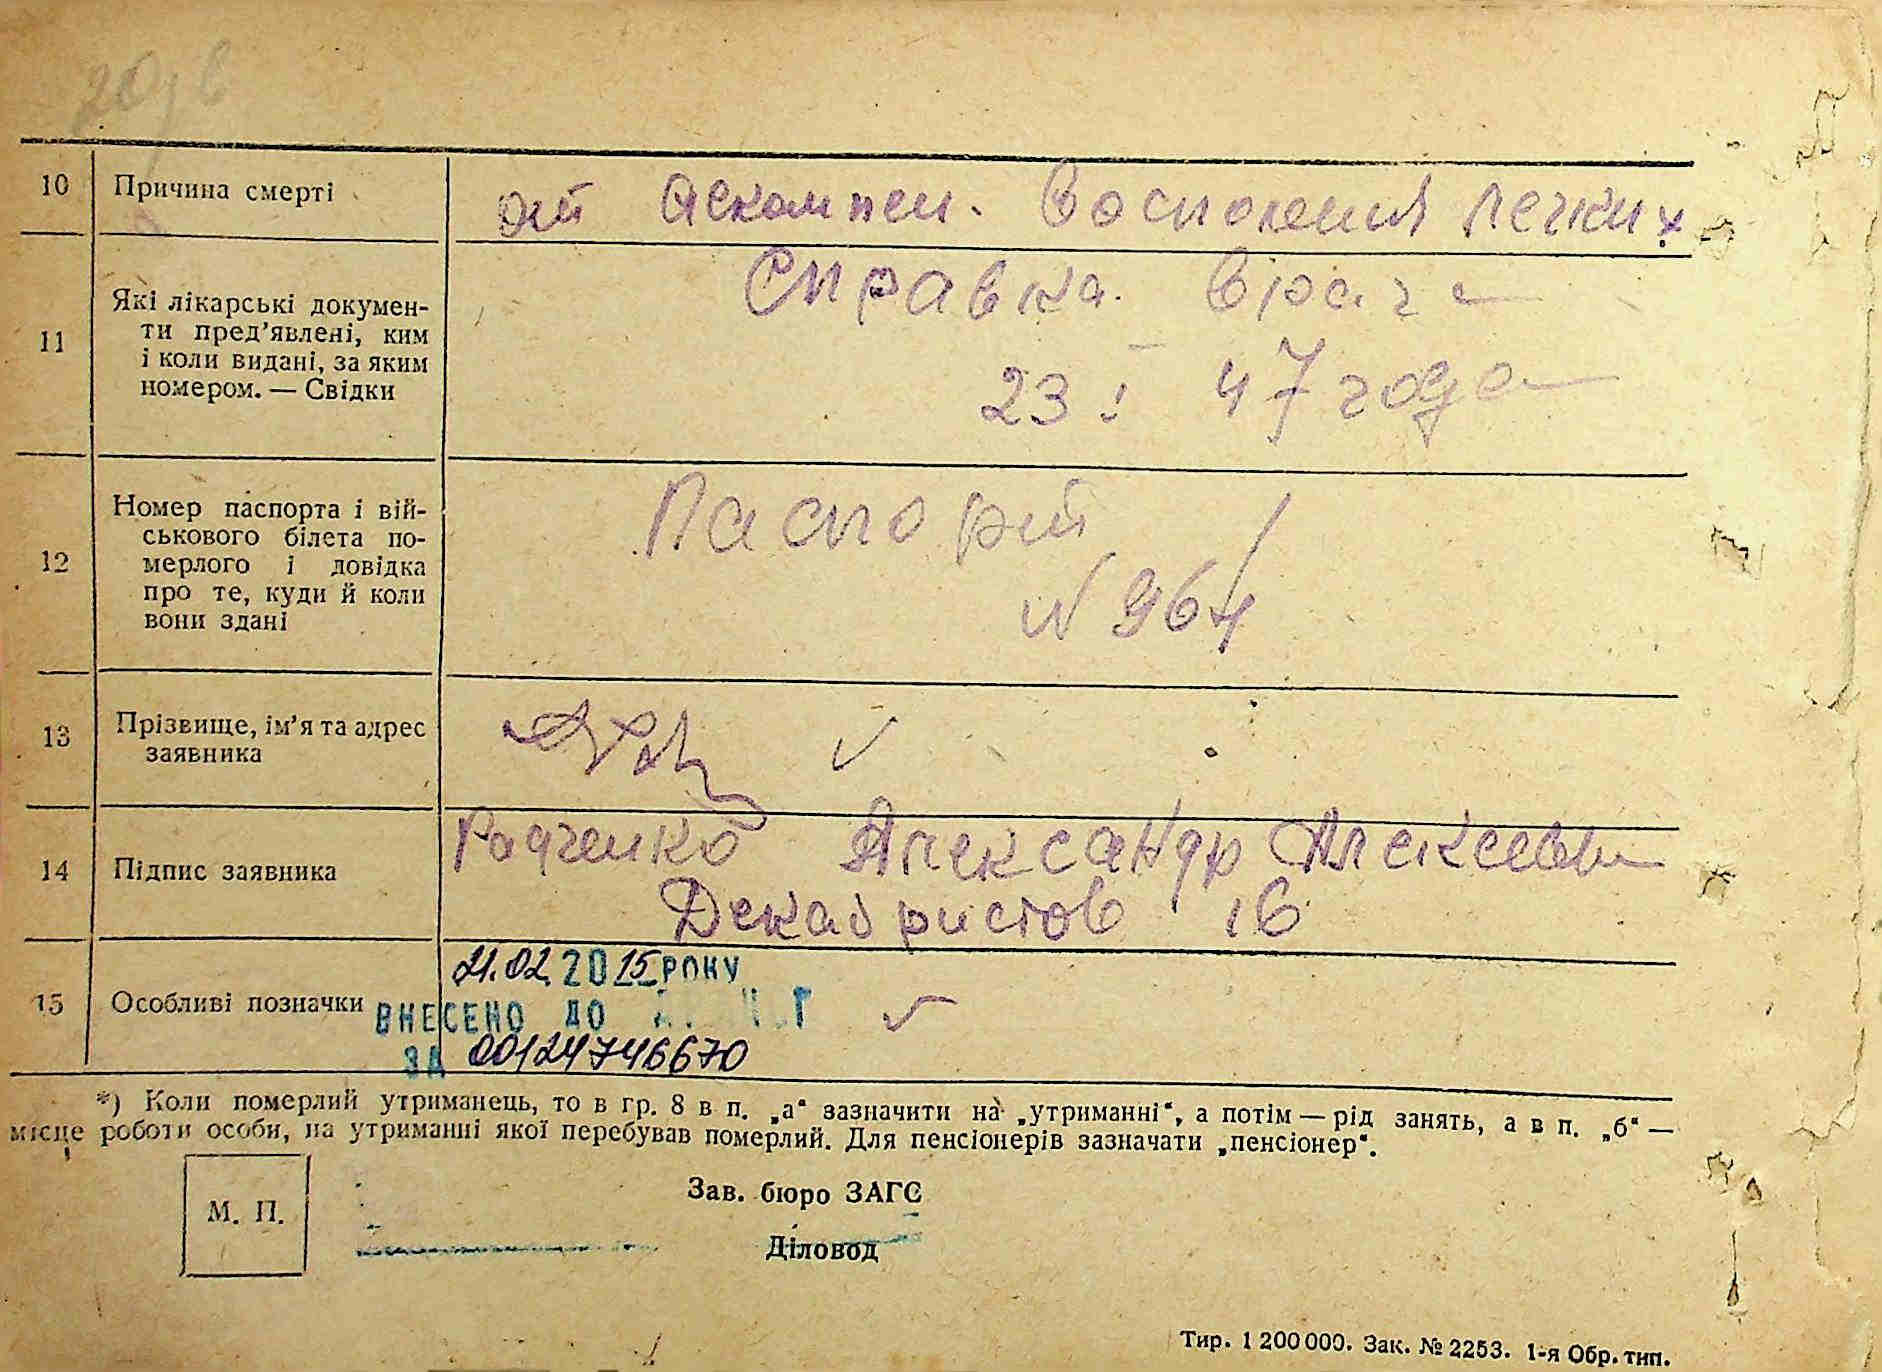 10 Причина смерті
от декомпен. Восполения легких
11 Які лікарські докумен-
ти пред’явлені, ким
і коли видані, за яким
номером. — Свідки
Справка врача
23 I 47 года
12 Номер паспорта і вій-
ськового білета по-
мерлого і довідка
про те, куди й коли
вони здані
Паспорт
N 964
13 Прізвище, ім’я та адрес
заявника
14 Підпис заявника
Радченко Александр Алексеевич
Декабристов 16
15 Особливі позначки
21.02 2015 РОКУ
ВНЕСЕНО ДО
ЗА 00124746670
*) Коли померлий утриманець, то в гр. 8 в п. „а“ зазначити на „утриманні“, а потім — рід занять, а в п. „б“ —
місце роботи особи, на утриманні якої перебував померлий. Для пенсіонерів зазначати „пенсіонер“.
М. П.
Зав. бюро ЗАГС
Діловод
Тир. 1 200 000. Зак. № 2253. 1-я Обр. тип.